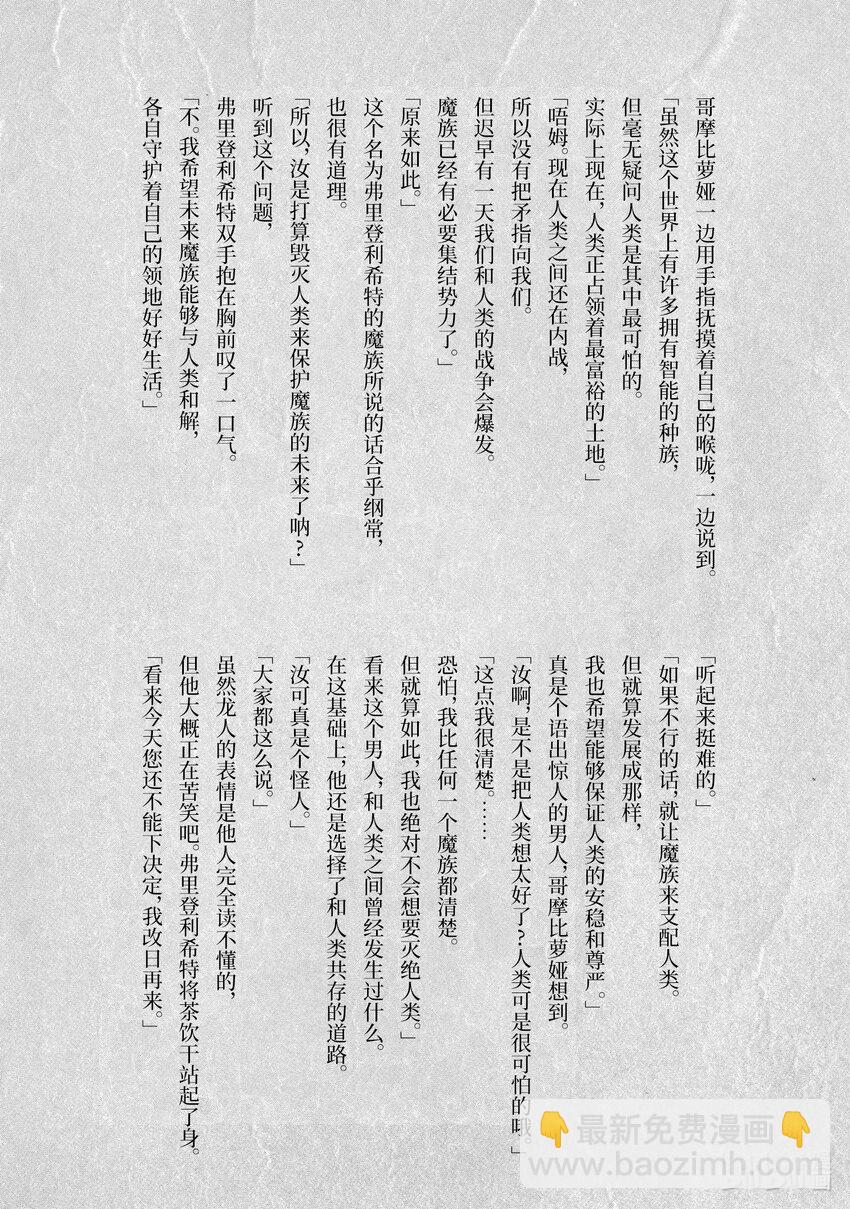 哥摩比萝娅一边用手指抚摸着自己的喉咙，一边说到。
「虽然这个世界上有许多拥有智能的种族，
但毫无疑问人类是其中最可怕的。
实际上现在，人类正占领着最富裕的土地。」
「唔姆。现在人类之间还在内战，
所以没有把矛指向我们。
但迟早有一天我们和人类的战争会爆发。
魔族已经有必要集结势力了。」
「原来如此。」
这个名为弗里登利希特的魔族所说的话合乎纲常，
也很有道理。
「所以，汝是打算毁灭人类来保护魔族的未来了呐？」
听到这个问题，
弗里登利希特双手抱在胸前叹了一口气。
「不。我希望未来魔族能够与人类和解，
各自守护着自己的领地好好生活。」
「听起来挺难的。」
「如果不行的话，就让魔族来支配人类。
但就算发展成那样，
我也希望能够保证人类的安稳和尊严。」
真是个语出惊人的男人，哥摩比萝娅想到。
「汝啊，是不是把人类想太好了？人类可是很可怕的哦。」
「这点我很清楚。……
恐怕，我比任何一个魔族都清楚。
但就算如此，我也绝对不会想要灭绝人类。」
看来这个男人，和人类之间曾经发生过什么。
在这基础上，他还是选择了和人类共存的道路。
「汝可真是个怪人。」
「大家都这么说。」
虽然龙人的表情是他人完全读不懂的，
但他大概正在苦笑吧。弗里登利希特将茶饮干站起了身。
「看来今天您还不能下决定，我改日再来。」
👇最新免费漫画👇
www.baozimh.com